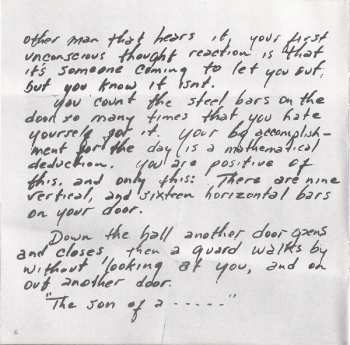 other man that hears it, your first
unconscious thought reaction is that
it's someone coming to let you out,
but you know it isnt.
You count the steel bars on the
door so many times that you hate
yourself for it. your big accomplish-
ment for the day is a mathematical
deduction. you are positive of
this, and only this: There are nine
vertical, and sixteen horizontal bars
on your door.
Down the hall another door opens
and closes, then a guard walks by
without looking at you, and on
out another door.
"The son of a ....."